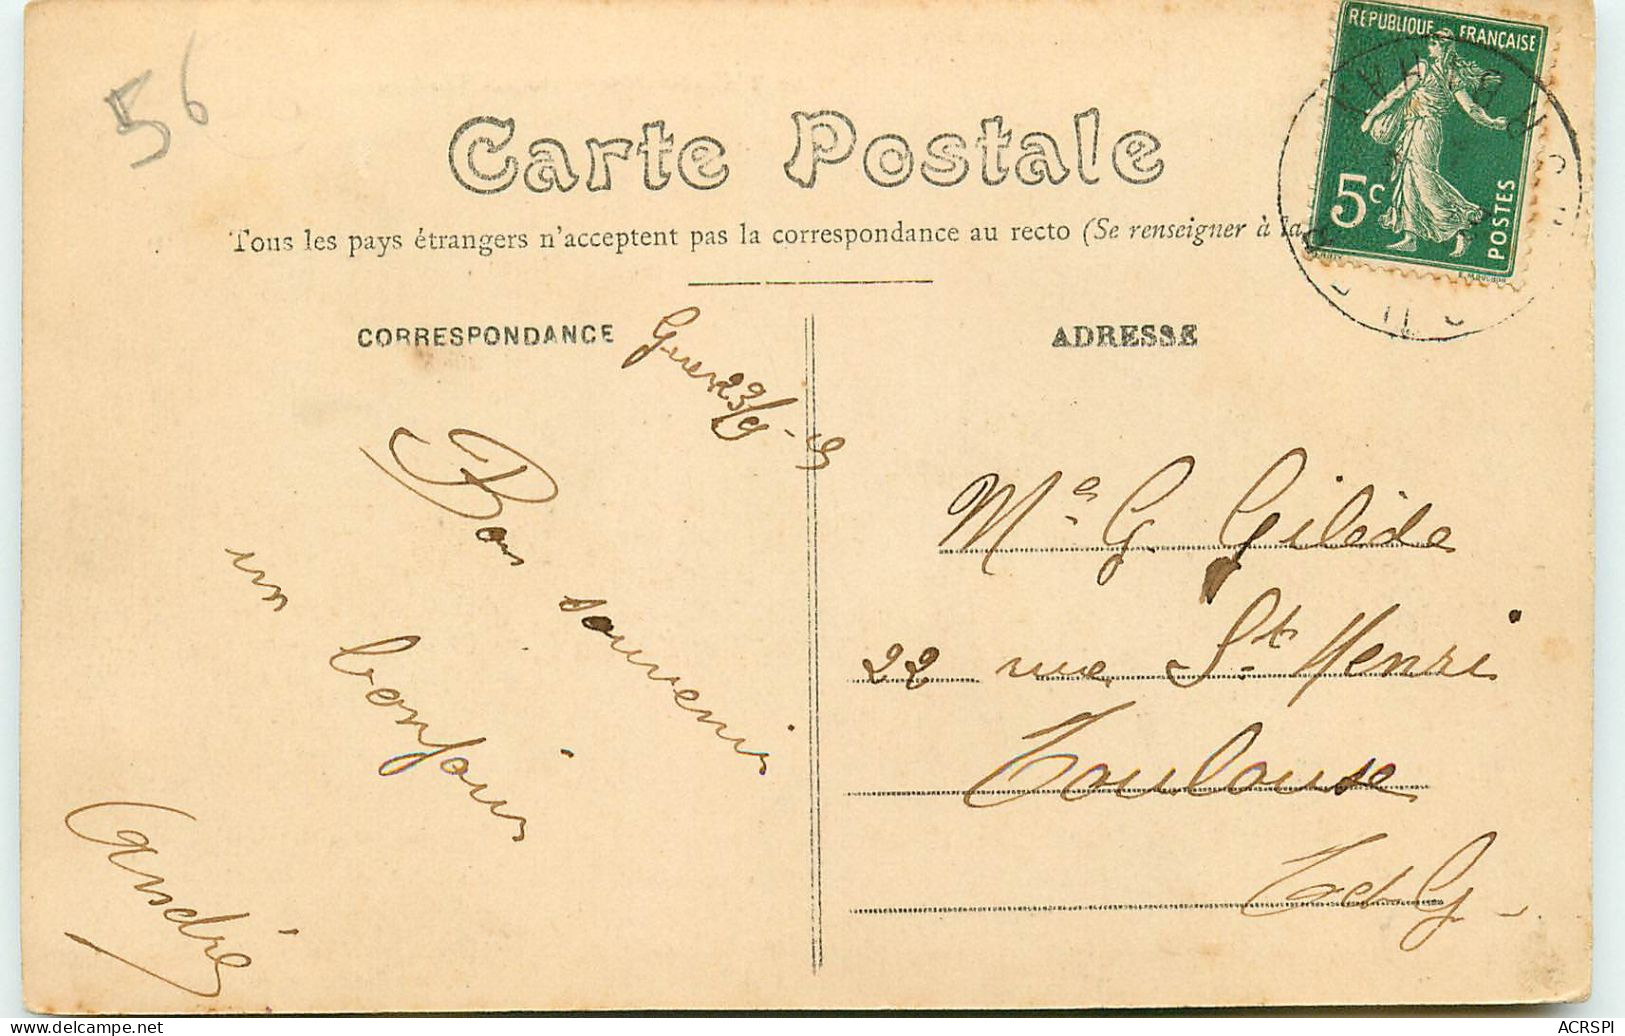 56
RÉPUBLIQUE FRANÇAISE
5c
POSTES
Carte Postale
Tous les pays étrangers n'acceptent pas la correspondance au recto (Se renseigner à la
CORRESPONDANCE
ADRESSE
23/9
Bon souvenir
un bonjour
André
Me G. Gilède
22 rue St Henri
Toulouse
ACRSPI